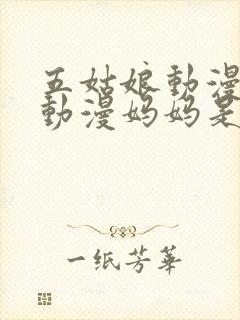 五姑娘動漫
動漫妈妈是
一纸芳華